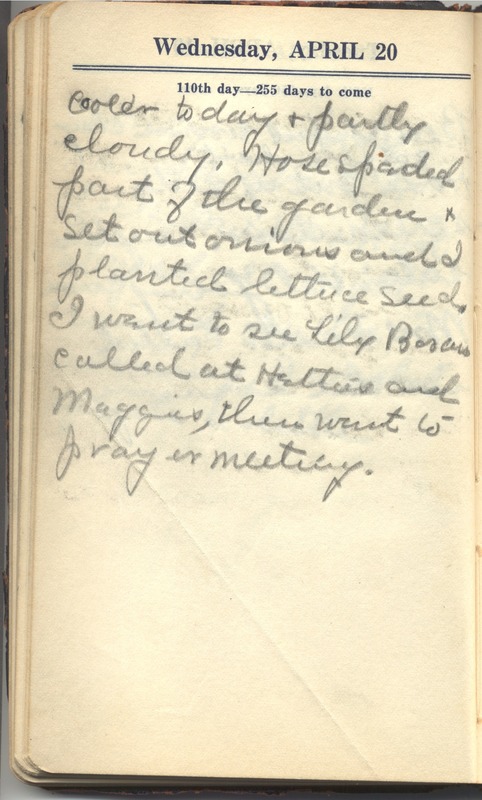 Wednesday, APRIL 20
110th day—255 days to come
cooler today + partly
cloudy. Hose spaded
part of the garden +
set out onions and I
planted lettuce seed.
I went to see Lily
called at Hatties and
Maggies, then went to
prayer meeting.